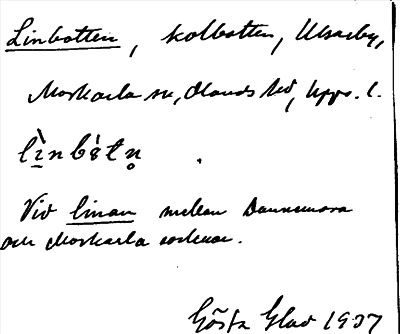 Linbotten, kolbotten, Ulvarby,
Morkarla sn, Olands hd, Upps. l.
lìnbòtn̥ .
Vid linan mellan Dannemora
och Morkarla socknar.
Gösta Glad 1937